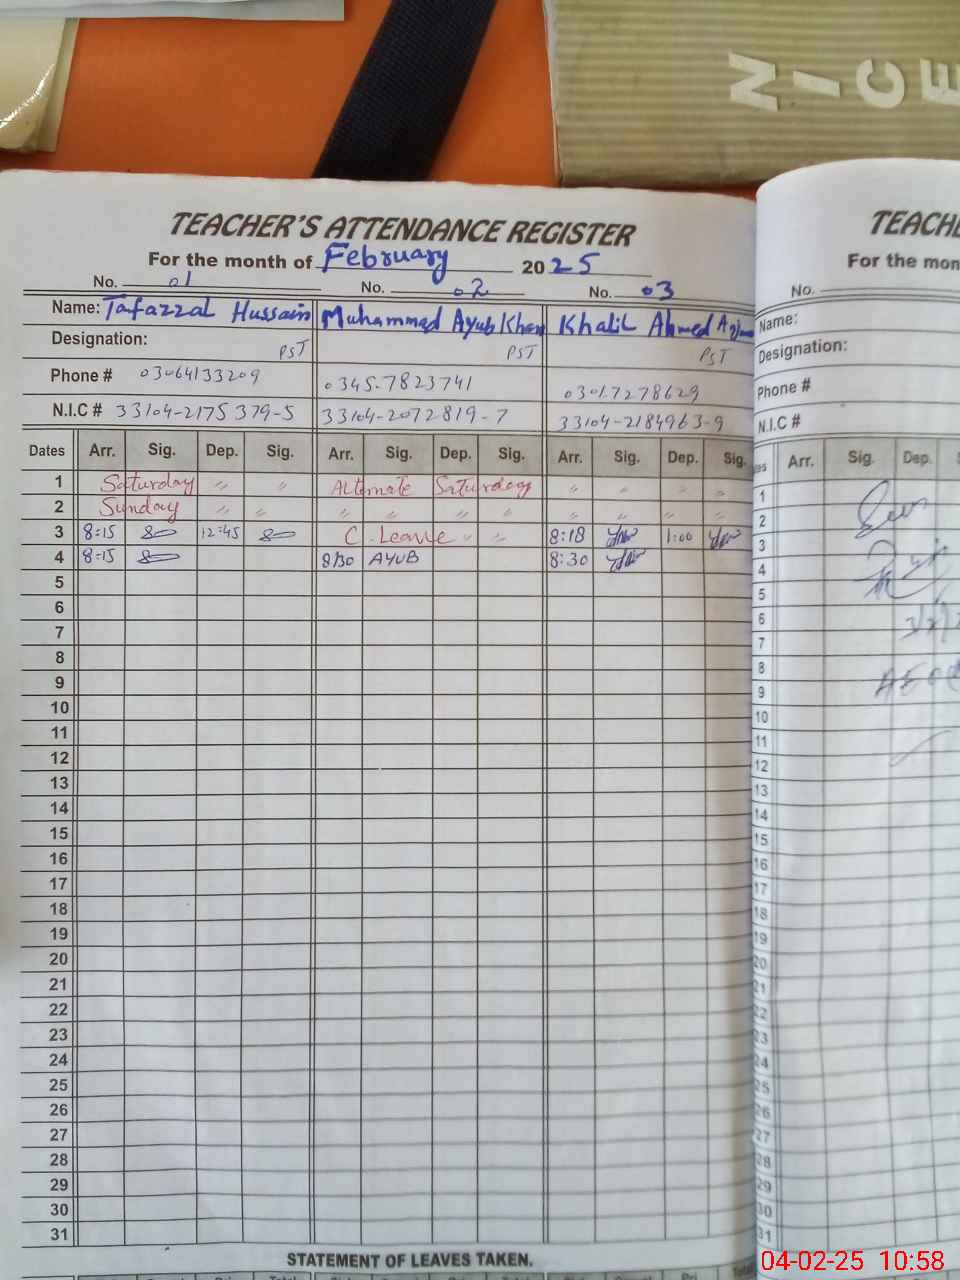 NICE
TEACHER'S ATTENDANCE REGISTER
For the month of February 2025
No. 01 No. 02 No. 03
Name: Tafazzal Hussain Muhammad Ayub Khan Khalil Ahmed
Designation: PST PST PST
Phone # 03064133209 0345-7823741 0301-7278629
N.I.C # 33104-2175379-5 33104-2072819-7 33104-2184963-9
Dates Arr. Sig. Dep. Sig. Arr. Sig. Dep. Sig. Arr. Sig. Dep. Sig.
1 Saturday " " Alternate Saturday " " " "
2 Sunday " " " " " " " " " "
3 8:15 12:45 C. Leave " " 8:18 1:00
4 8:15 8/30 AYUB 8:30
5
6
7
8
9
10
11
12
13
14
15
16
17
18
19
20
21
22
23
24
25
26
27
28
29
30
31
STATEMENT OF LEAVES TAKEN.
TEACH
For the mon
No.
Name:
Designation:
Phone #
N.I.C #
es Arr. Sig. Dep. S
1
2
3
4
5
6
7
8
9
10
11
12
13
14
15
16
17
18
19
20
21
22
23
24
25
26
27
28
29
30
31
04-02-25 10:58